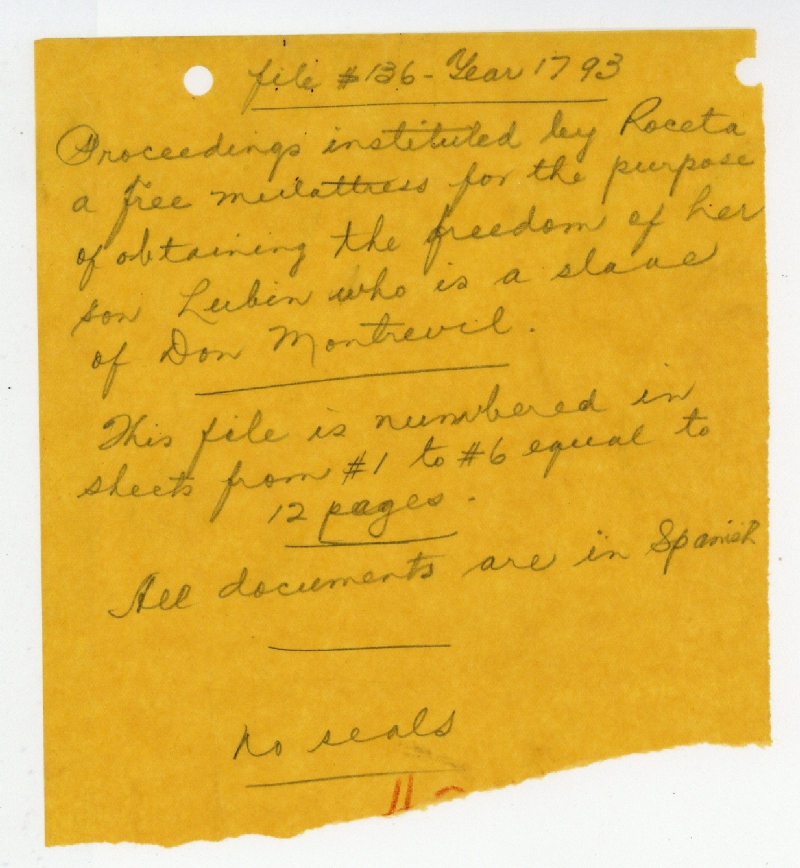 file #136 - Year 1793
Proceedings instituted by Roceta
a free mulattress for the purpose
of obtaining the freedom of her
son Lubin who is a slave
of Don Montrevil.
This file is numbered in
sheets from #1 to #6 equal to
12 pages.
All documents are in Spanish
No seals